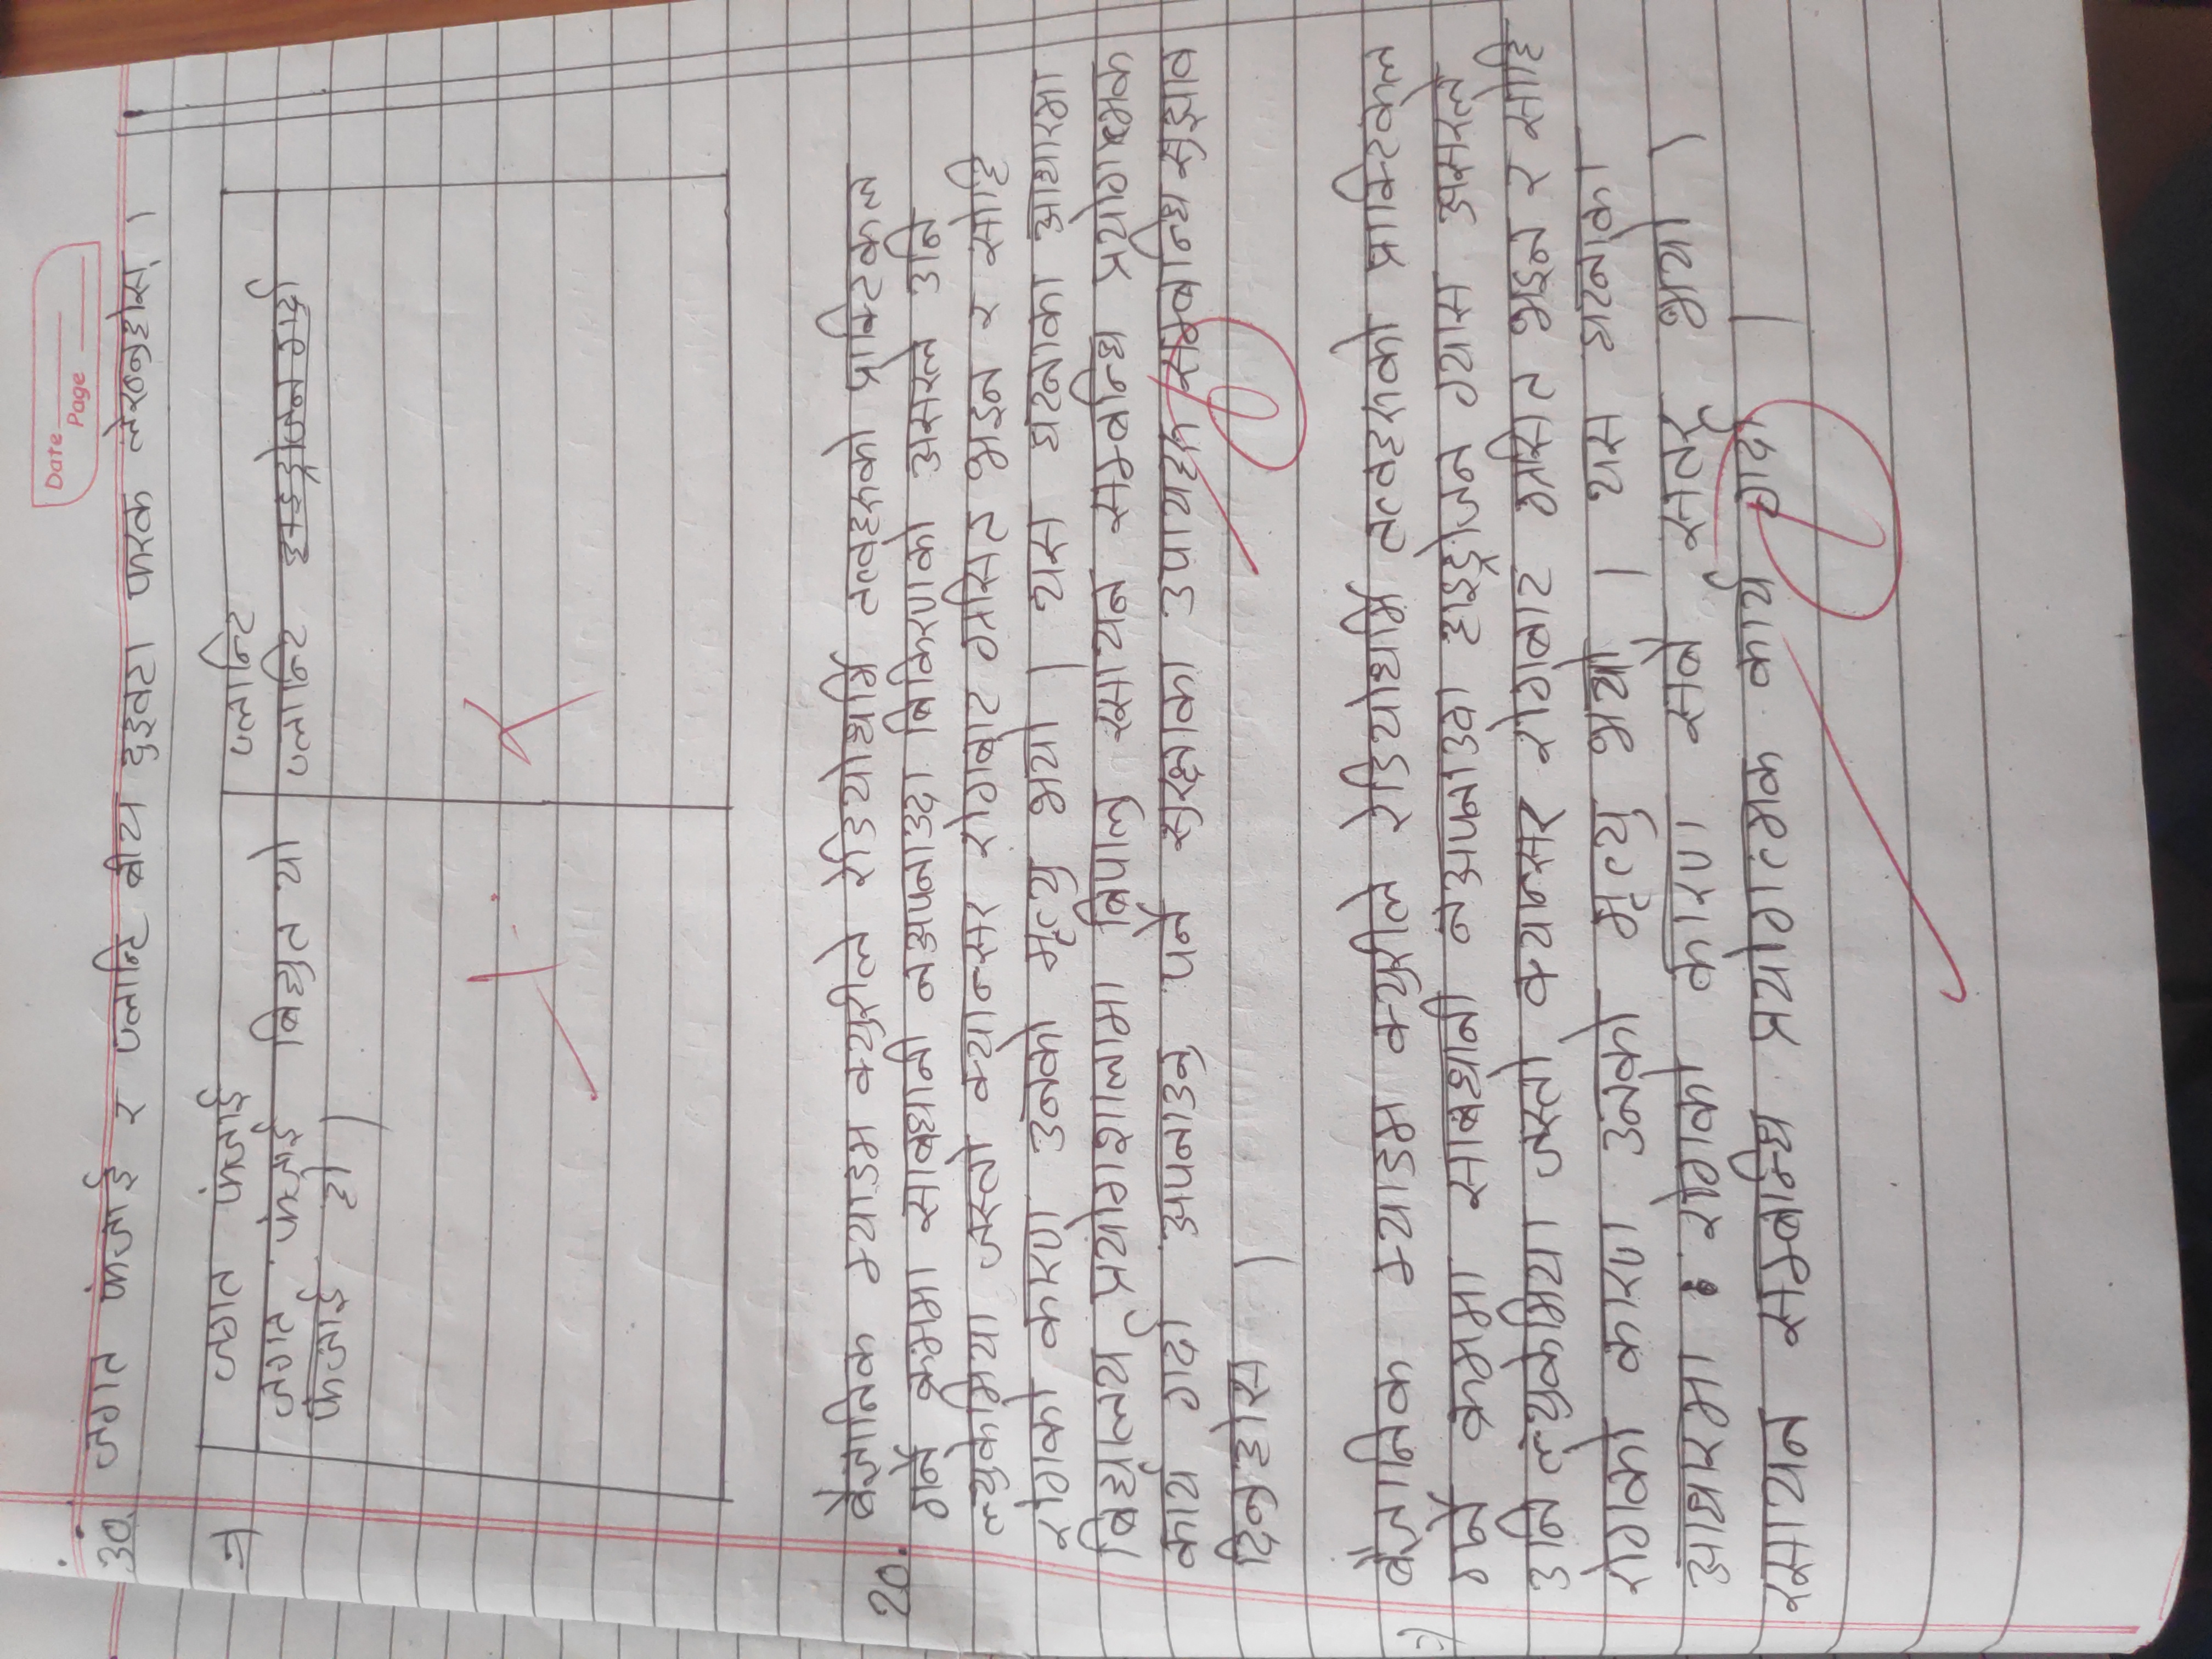 Date
Page
30. जगत फंजाई र प्लान्टि बीय दुइवटा फरक लेख्नुहोस् ।
⇒ जगत फंजाई प्लान्टि
जगत फंजाई बिद्युत यो प्लान्टि हाइड्रोजन गर्दा
फंजाई हो ।
20. बैज्ञानिक म्याडम क्युरीले रेडियोधर्मि तत्वहरुको प्राक्टिकल
गर्ने क्रममा साबधानी नअपनाउदा बिकिरणको असरले उनि
ल्युकेमिया जस्तो क्यान्सर रोगबाट ग्रसित भइन र सोहि
रोगको कारण उनको मृत्यु भयो । यस घटनाका आधारमा
बिद्यालय प्रयोगशालामा बिपालु रसायन सम्बन्धि प्रयोगात्मक
कार्य गर्दा अपनाउनु पर्ने सुरक्षाका उपायहरु सम्बन्धि सुझाव
दिनुहोस ।
⇒ बैज्ञानिक म्याडम क्युरीले रेडियोधर्मि तत्वहरुको प्राक्टिकल
गर्ने क्रममा साबधानी नअपनाउदा हाइड्रोजन ग्यास असरले
उनि ल्युकेमिया जस्तो क्यान्सर रोगबाट ग्रसित भइन र सोहि
रोगको कारण उनको मृत्यु भयो । यस घटनाका
आधारमा रोगको कारण सबै सतर्द भयो ।
रसायन सम्बन्धि प्रयोगत्मक कार्य गर्दा ।